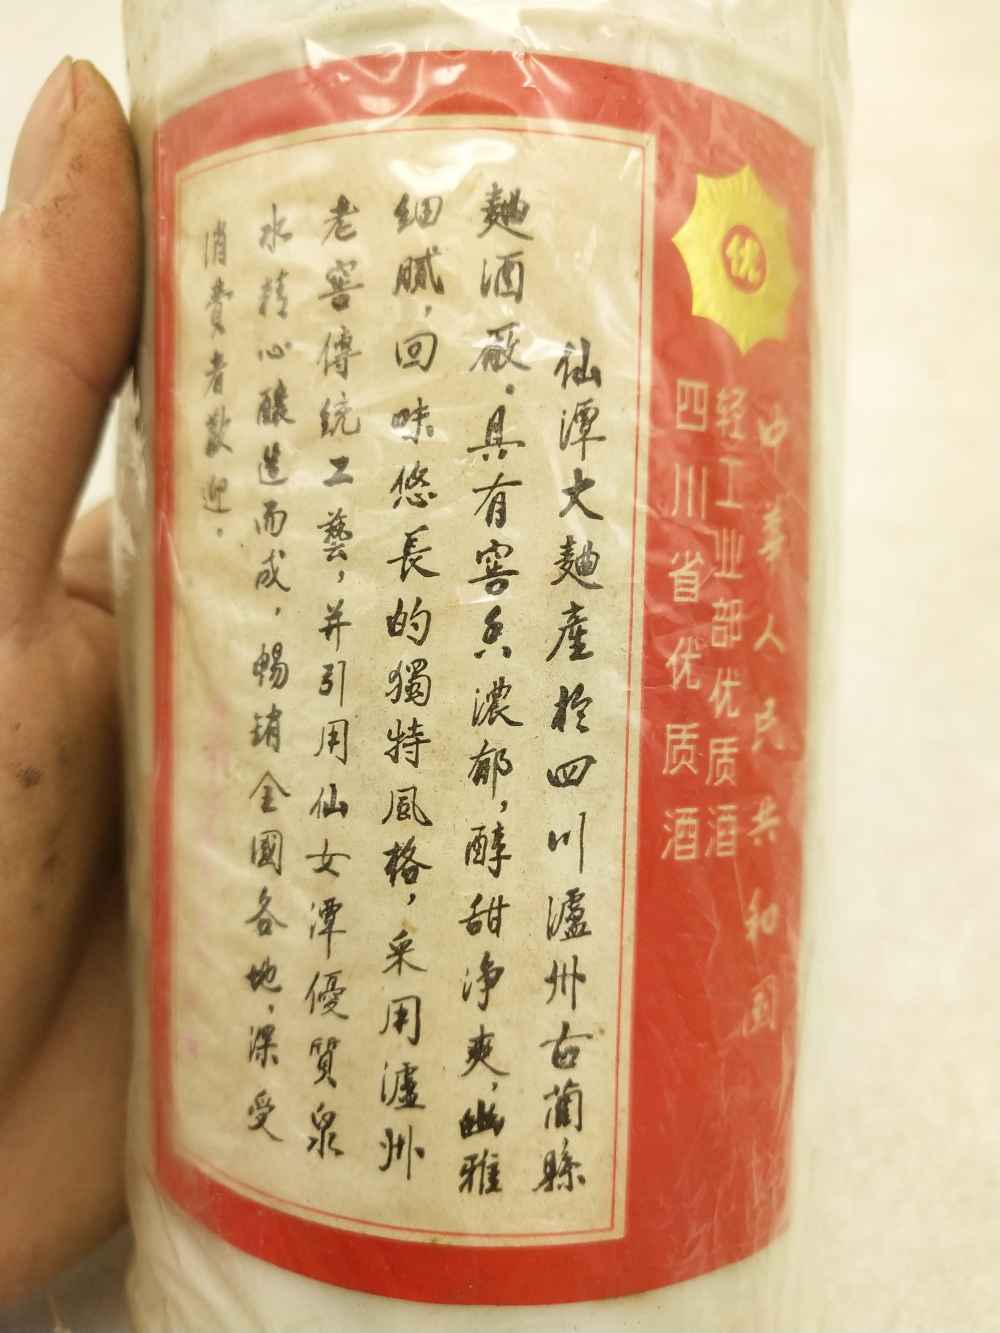 优
中华人民共和国
轻工业部优质酒
四川省优质酒
仙潭大麯產於四川瀘州古藺縣
麯酒廠．具有窖香濃郁，醇甜净爽，幽雅
細膩，回味悠長的獨特風格，采用瀘州
老窖傳統工藝，并引用仙女潭優質泉
水精心釀造而成，暢銷全國各地，深受
消費者歡迎．